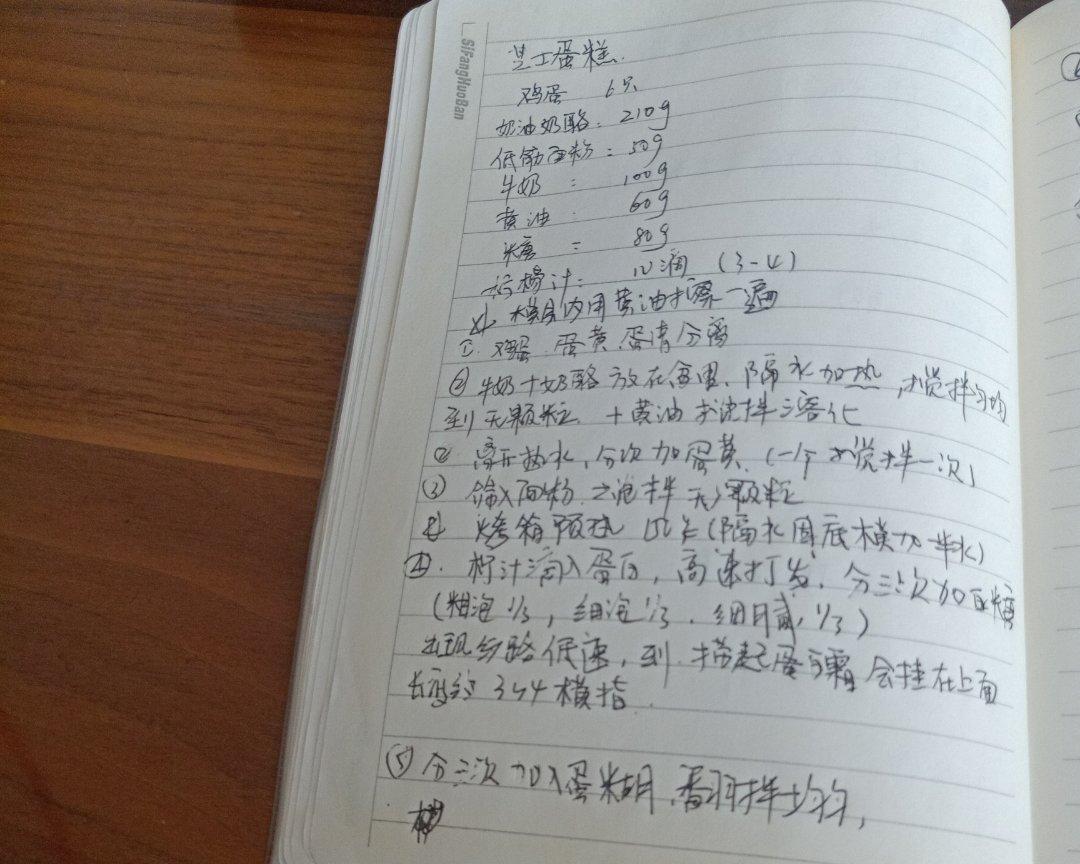 SiFangHuoBan
芝士蛋糕.
鸡蛋 6只
奶油奶酪: 210g
低筋面粉: 50g
牛奶: 100g
黄油: 60g
糖: 80g
柠檬汁: 几滴 (3-4)
模具内用黄油抹擦一遍
①. 鸡蛋. 蛋黄. 蛋清分离
② 牛奶+奶酪 放在盆里. 隔水加热, 搅拌匀均
到无颗粒 + 黄油 搅拌溶化
② 离开热水, 分次加蛋黄. (一个搅拌一次)
③ 筛入面粉 搅拌无颗粒
烤箱预热 (隔水固底模加一半水)
④. 柠汁滴入蛋白, 高速打发. 分三次加白糖
(粗泡1/3, 细泡1/3. 细腻, 1/3)
出现纹路低速, 到. 捞起蛋白霜会挂在上面
长度约 3-4横指.
⑤ 分三次加入蛋糊, 翻拌均匀,